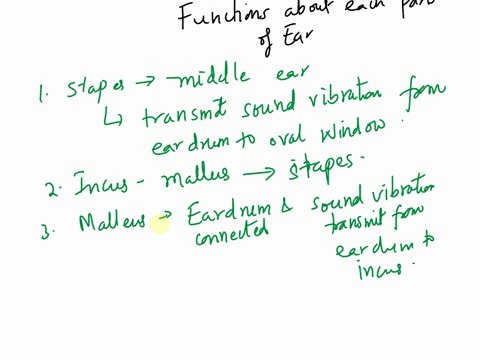 Functions about each part
of Ear
1. Stapes → middle ear
↳ transmit sound vibration from
eardrum to oval window.
2. Incus - malleus → stapes.
3. Malleus → Eardrum & sound vibration
connected transmit from
eardrum to
incus.